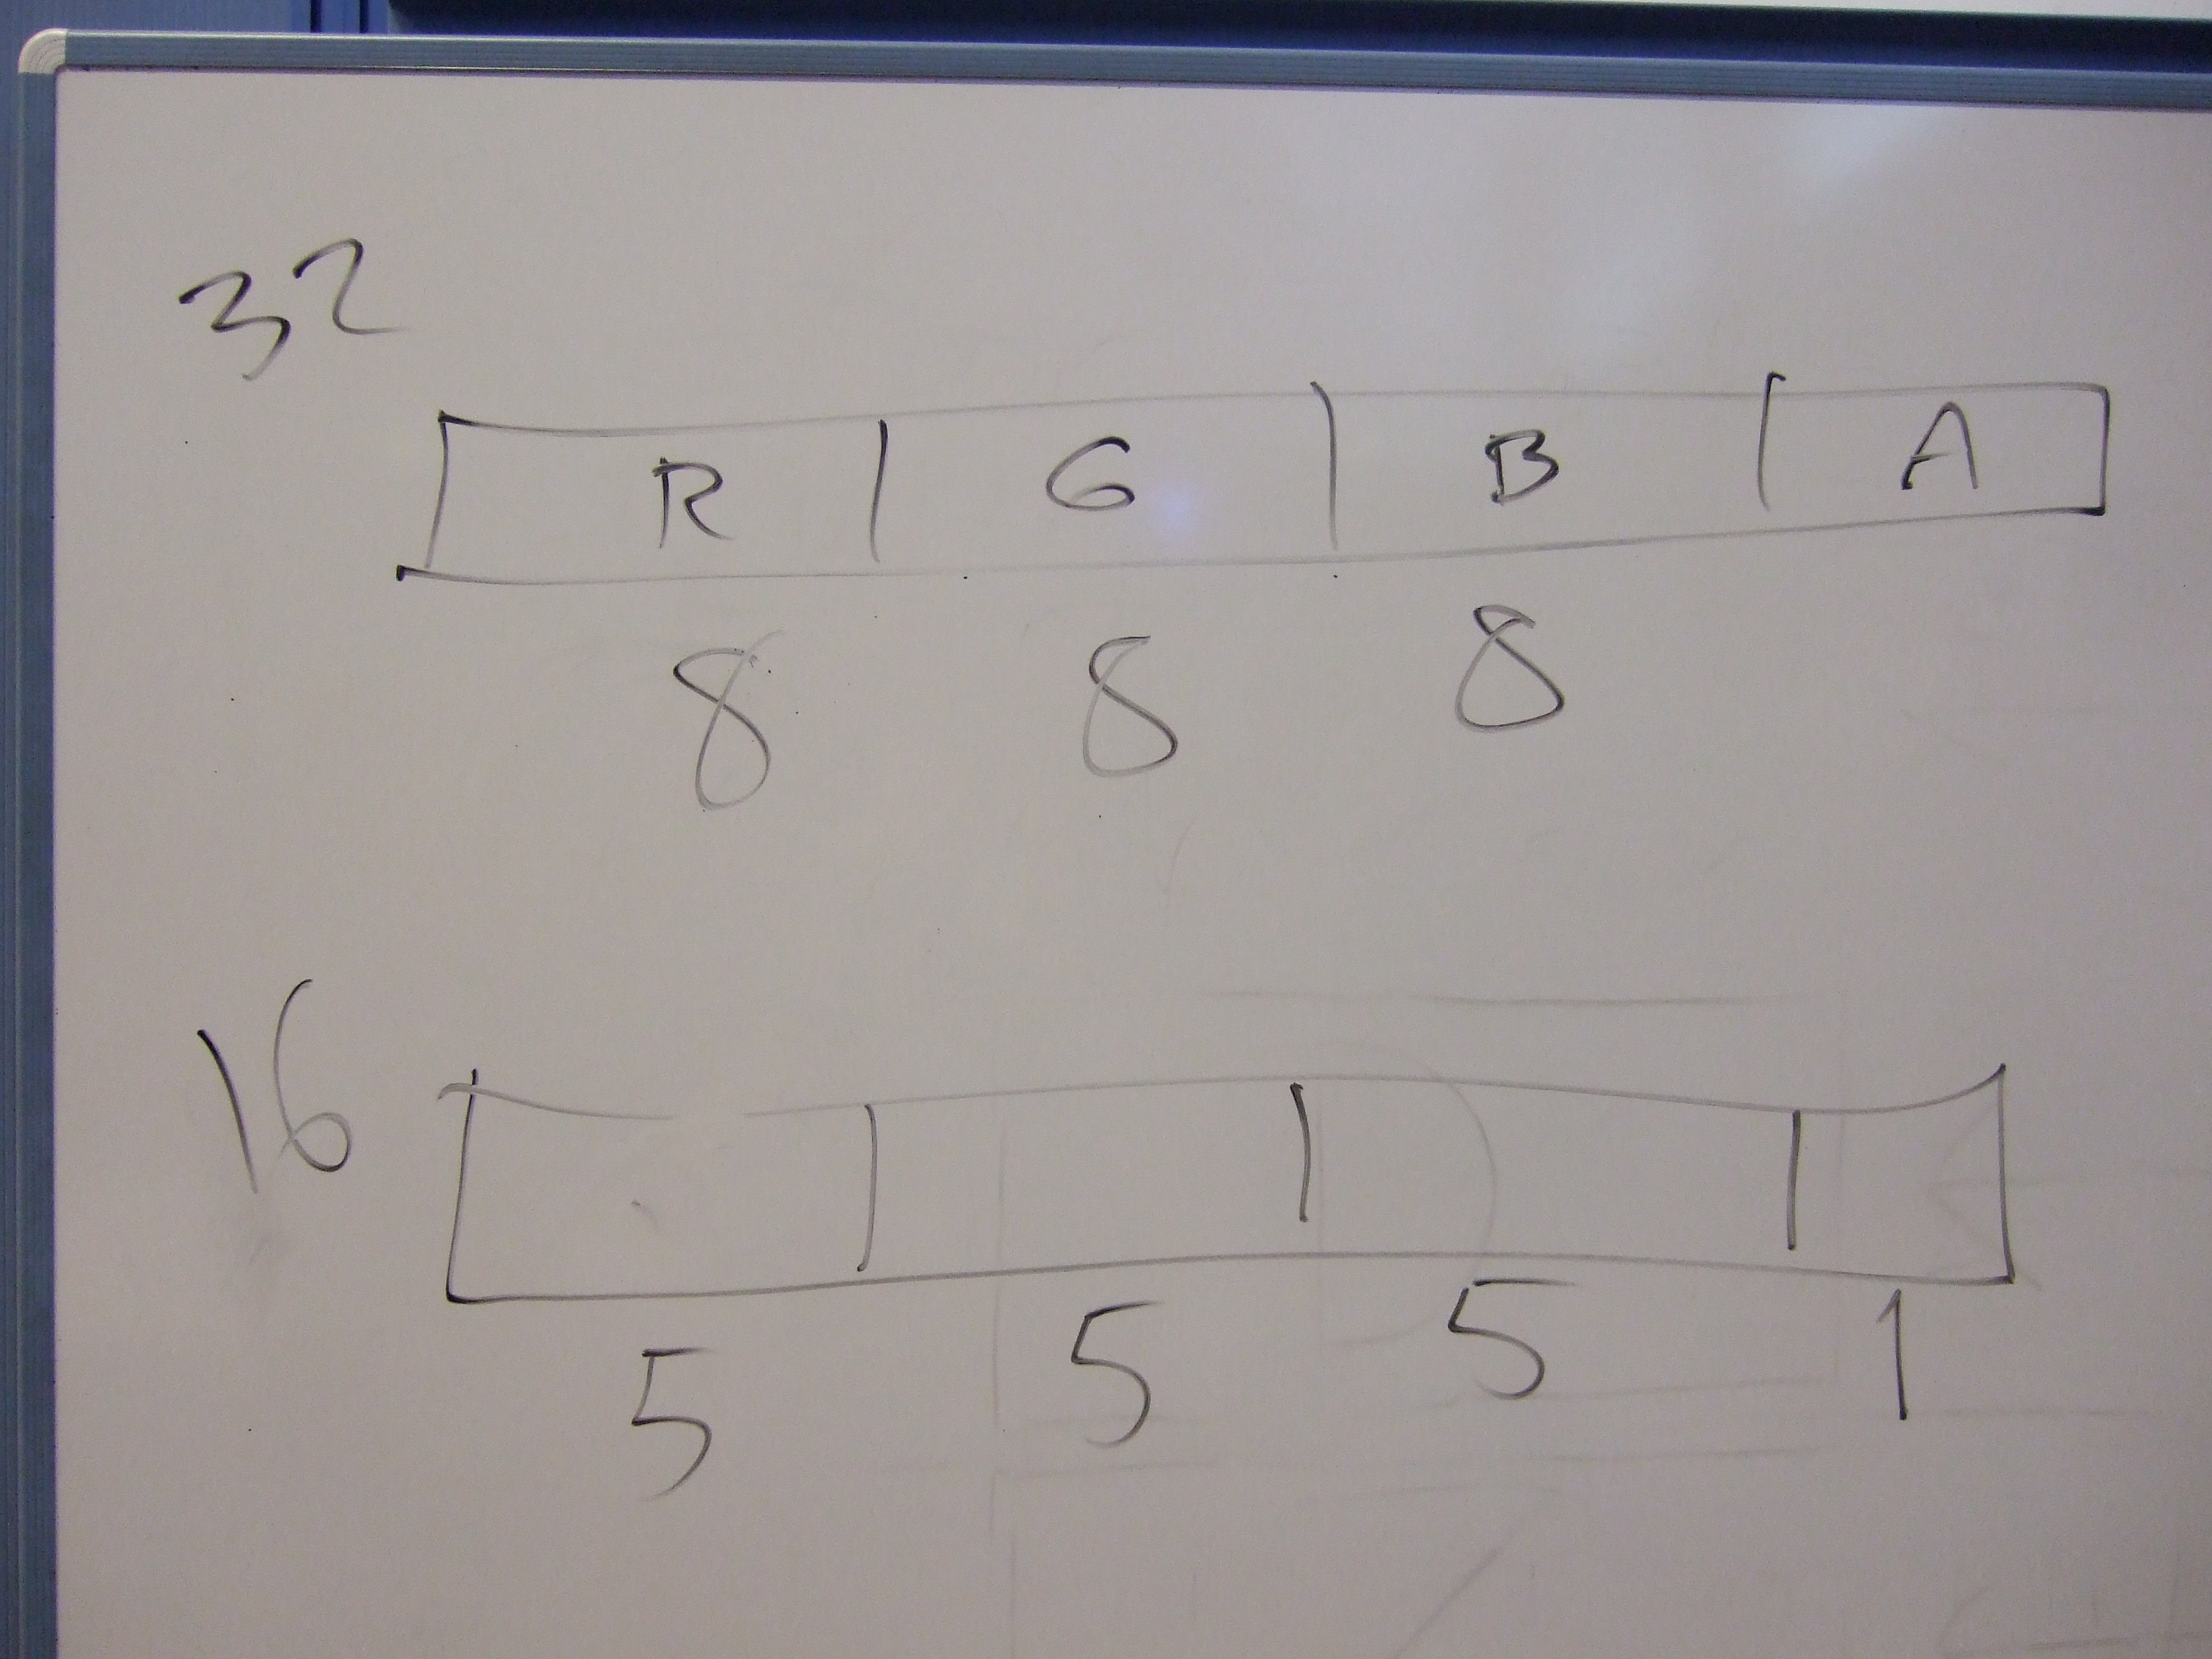 32
R G B A
8 8 8
16
5 5 5 1